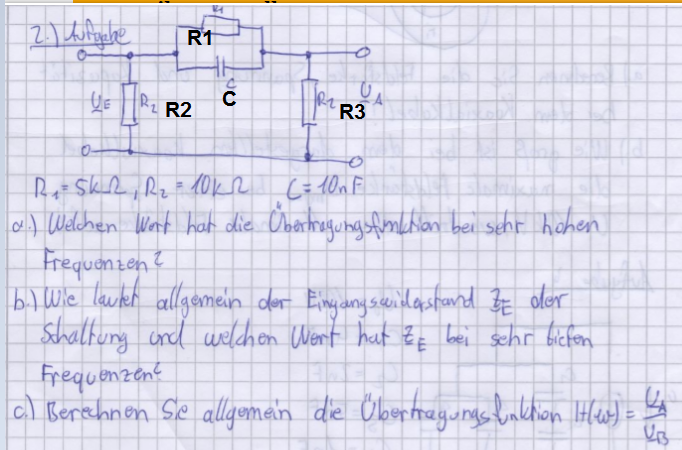 2.) Aufgabe
R1
R1
C
C
U_E R2 R2
R2 R3 U_A
R1 = 5kΩ, R2 = 10kΩ C = 10nF
a.) Welchen Wert hat die Übertragungsfunktion bei sehr hohen
Frequenzen?
b.) Wie lautet allgemein der Eingangswiderstand Z_E der
Schaltung und welchen Wert hat Z_E bei sehr tiefen
Frequenzen?
c.) Berechnen Sie allgemein die Übertragungsfunktion H(ω) = U_A / U_E